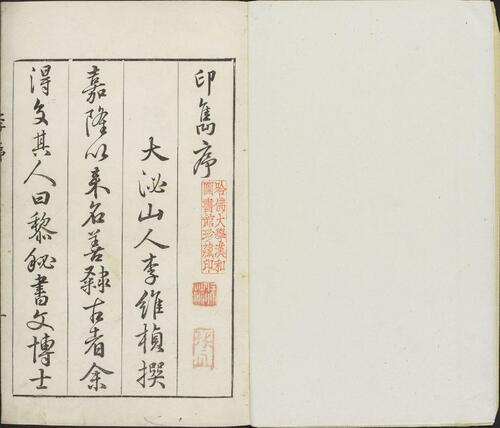 印雋序
哈佛大學漢和
圖書館珍藏印
大泌山人李維楨撰
嘉隆以來名善隸古者余
得交其人曰黎秘書文博士